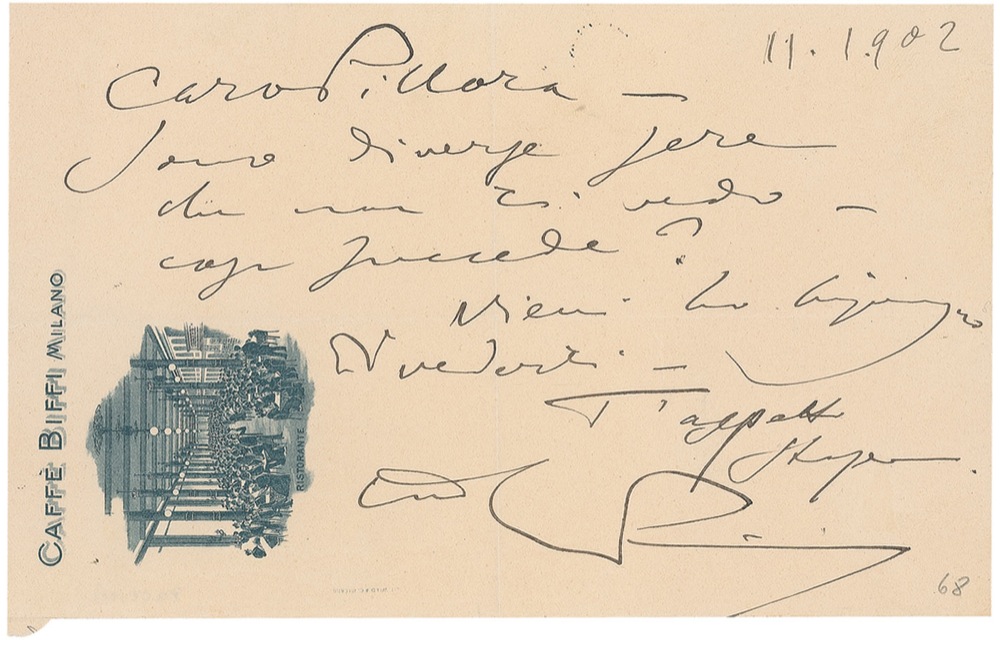 11.1902
Caro Pillora —
Sono diverse sere
che non ti vedo —
cosa succede?
Vieni ho bisogno
di vederti —
T'aspetto
stasera.
CAFFÈ BIFFI MILANO
RISTORANTE
68